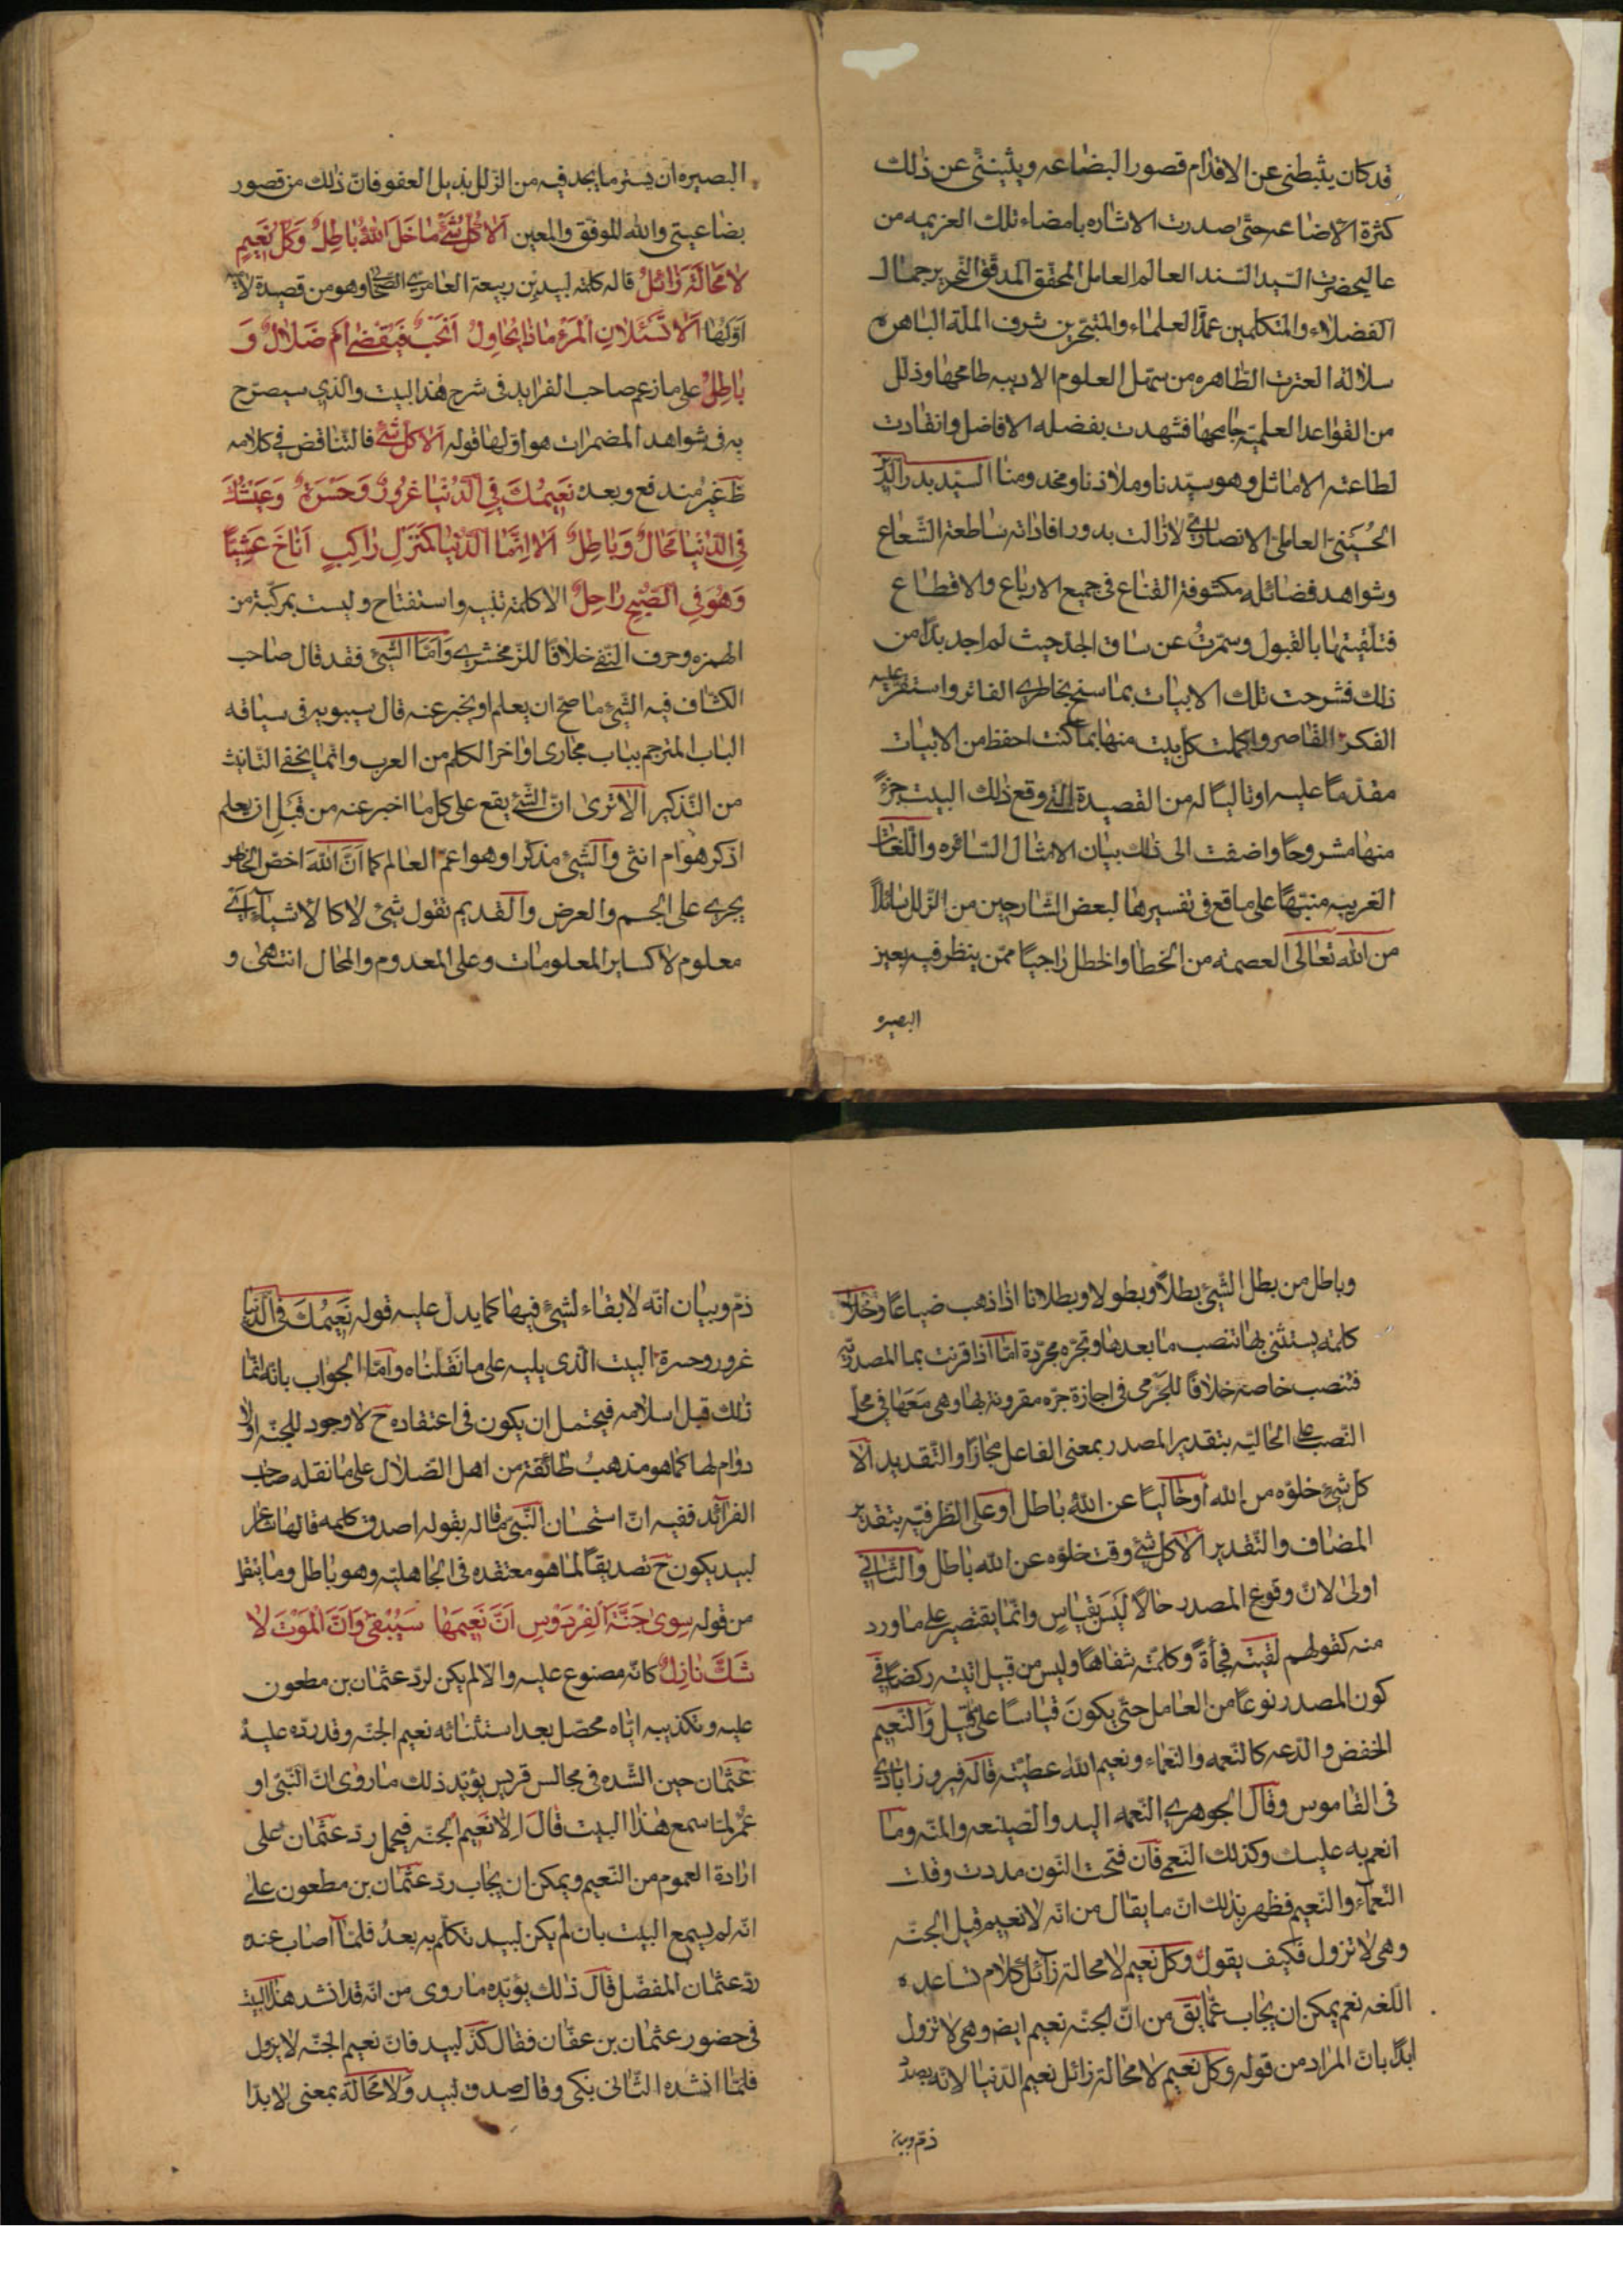 قد كان يثبطنى عن الاقدام قصور البضاعه ويثيننى عن ذلك
كثرة الاضاعه حتى صدرت الاشاره بامضاء تلك العزيمه من
عاليحضرت السيد السند العالم العامل المحقق المدقق النحرير جمال
الفضلاء والمتكلمين عمدة العلماء والمتبحرين شرف الملة الباهره
سلالة العترت الطاهره من سهل العلوم الادبيه طامحها وذلل
من القواعد العلميه جامحها فشهدت بفضله الافاضل وانقادت
لطاعته الاماثل وهو سيدنا وملاذنا ومخدومنا السيد بدر الدين
الحسينى العاملى الانصارى لازالت بدور افاداته ساطعة الشعاع
وشواهد فضائله مكشوفة القناع فى جميع الارباع والاقطاع
فتلقيتها بالقبول وشمرت عن ساق الجد حيث لم اجد بدا من
ذلك فشرحت تلك الابيات بما سنح بخاطرى الفاتر واستقر عليه
الفكر القاصر واكملت كل بيت منها بما كنت احفظ من الابيات
مقدما عليه او تاليا له من القصيدة التى وقع ذلك البيت جزءً
منها مشروحا واضفت الى ذلك بيان الامثال السائره واللغات
الغريبه منبها على ما وقع فى تفسيرها لبعض الشارحين من الزلل سائلاً
من الله تعالى العصمة من الخطا والخطل راجيا ممن ينظر فيه بعين
البصيره
البصيره ان يستر ما يجد فيه من الزلل بذيل العفو فان ذلك من قصور
بضاعتى والله الموفق والمعين اَلا كُلُّ شَىْءٍ مَا خَلَا اللهَ بَاطِلٌ وَكُلُّ نَعِيمٍ
لا مَحَالَةَ زَائلٌ قاله كلمة لبيد بن ربيعة العامرى الصحابى وهو من قصيدة لامية
اولها اَلا تَسْئَلانِ الْمَرْءَ مَاذَا يُحَاوِلُ اَنَحْبٌ فَيُقْضٰى اَمْ ضَلالٌ وَ
بَاطِلٌ على ما زعم صاحب الفرايد فى شرح هذا البيت والذى سيصرح
به فى شواهد المضمرات هو اولها قوله اَلا كل شَىْءٍ فالتناقض فى كلامه
ظ غير مندفع وبعده نَعِيمُكَ فِى الدُّنْيَا غُرُورٌ وَحَسْرَةٌ وَعَيْشُكَ
فِى الدُّنْيَا مَحَالٌ وَبَاطِلٌ اَلا اِنَّمَا الدُّنْيَا كَمَنْزِلِ رَاكِبٍ اَنَاخَ عَشِيًّا
وَهُوَ فِى الصُّبْحِ رَاحِلٌ الا كلمة تنبيه واستفتاح وليست بمركبة من
الهمزه وحرف النفى خلافا للزمخشرى وَاَمَّا الشَّىْءُ فقد قال صاحب
الكشاف فيه الشىء ما صح ان يعلم او يخبر عنه قال سيبويه فى سياقه
الباب المترجم بباب مجارى اواخر الكلم من العرب وانما يخفى التانيث
من التذكير الا ترى ان الشىء يقع على كل ما اخبر عنه من قَبْلِ ان يعلم
اذكر هو ام انثى والشىء مذكر او هو اعم العالم كما اَنَّ اللهَ اخص الخاص
يجرى على الجسم والعرض والقديم تقول شىءٌ لا كالاشياء اى
معلوم لا كساير المعلومات وعلى المعدوم والمحال انتهى و
وباطل من بطل الشىء بطلا وبطولا وبطلانا اذا ذهب ضياعا وخلا
كلمة يستثنى بها تنصب ما بعدها وتجره مجردة اما اذا قرنت بما المصدرية
فتنصب خاصة خلافا للجرمى فى اجازة جره مقرونة بها وهى مَعَهَا فى محل
النصب على الحاليه بتقدير المصدر بمعنى الفاعل مجازا والتقدير الا
كل شىء خلوه من الله او خاليا عن الله باطل او على الظرفيه بتقدير
المضاف والتقدير الا كل شىء وقت خلوه عن الله باطل والثانى
اولى لان وقوع المصدر حالا لَيْسَ بِقِيَاسٍ وانما يقتصر على ما ورد
منه كقولهم لقيته فجأةً وكلمته شفاها وليس من قبيل اتيته ركضا فى
كون المصدر نوعا من العامل حتى يكونَ قياسا على قيل والنعيم
الخفض والدعه كالنعمه والنعماء ونعيم الله عطيته قاله فيروزابادى
فى القاموس وقال الجوهرى النعمه اليد والصنيعه والمنه وما
انعم به عليك وكذلك النعمى فان فتحت النون مددت وقلت
النعمآء والنعيم فظهر بذلك ان ما يقال من انه لا نعيم قبل الجنه
وهى لا تزول فكيف يقول وكل نعيم لا محالة زآئل كلام تساعده
اللغه نعم يمكن ان يجاب عما يق من ان الجنه نعيم ايضه وهى لا تزول
ابدا بان المراد من قوله وكل نعيم لا محالة زائل نعيم الدنيا لانه بصدد
ذم وبيان
ذم وبيان انه لا بقاء لشىء فيها كما يدل عليه قوله نَعِيمُكَ فى الدنيا
غرور وحسرة البيت الذى يليه على ما نقلناه واما الجواب بانه انما
ذلك قبل اسلامه فيحتمل ان يكون فى اعتقاده ح لا وجود للجنه او لا
دوام لها كما هو مذهبُ طائفة من اهل الضلال على ما نقله صاحب
الفرآئد ففيه ان استحسان النبى ما قاله بقوله اصدق كلمه قالها شاعر
لبيد يكون ح تصديقا لما هو معتقده فى الجاهليه وهو باطل وما ينقل
من قوله سِوٰى جَنَّةِ الْفِرْدَوْسِ اَنَّ نَعِيمَهَا سَيَبْقٰى وَاَنَّ الْمَوْتَ لا
شَكَّ نَازِلٌ كانه مصنوع عليه والا لم يكن لرد عثمان بن مطعون
عليه وتكذيبه اياه محصل بعد استثنائه نعيم الجنه وقد رده عليه
عثمان حين انشده فى مجالس قريش يؤيد ذلك ما روى ان النبى او
عمر لما سمع هذا البيت قَالَ اِلا نعيم الجنه فيحمل رد عثمان على
ارادة العموم من النعيم ويمكن ان يجاب رد عثمان بن مطعون على
انه لم يسمع البيت بان لم يكن لبيد تكلم به بعدُ فلما اصاب عنه
رد عثمان المفضل قال ذلك يؤيده ما روى من انه قد انشد هذا البيت
فى حضور عثمان بن عفان فقال كذب لبيد فان نعيم الجنه لا يزول
فلما انشده الثانى بكى وقال صدق لبيد وَلا مَحَالَةَ بمعنى لا بدا